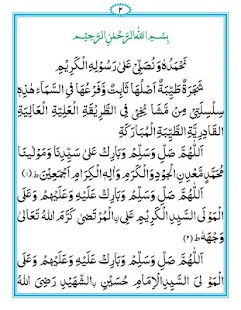 ۲
بِسْمِ اللهِ الرَّحْمٰنِ الرَّحِيْمِ
نَحْمَدُهٗ وَ نُصَلِّىْ عَلٰى رَسُوْلِهِ الْكَرِيْمِ
شَجَرَةٌ طَيِّبَةٌ اَصْلُهَا ثَابِتٌ وَّفَرْعُهَا فِى السَّمَآءِ هٰذِهٖ
سِلْسِلَتِىْ مِنْ مَّشَائِخِىْ فِى الطَّرِيْقَةِ الْعَلِيَّةِ الْعَالِيَةِ
الْقَادِرِيَّةِ الطَّيِّبَةِ الْمُبَارَكَةِ
اَللّٰهُمَّ صَلِّ وَسَلِّمْ وَبَارِكْ عَلٰى سَيِّدِنَا وَمَوْلٰينَا
مُحَمَّدٍ مَّعْدِنِ الْجُوْدِ وَالْكَرَمِ وَاٰلِهِ الْكِرَامِ اَجْمَعِيْنَ ط (۱)
اَللّٰهُمَّ صَلِّ وَسَلِّمْ وَبَارِكْ عَلَيْهِ وَعَلَيْهِمْ وَعَلَى
الْمَوْلَى السَّيِّدِ الْكَرِيْمِ عَلِىِّ نِ الْمُرْتَضٰى كَرَّمَ اللهُ تَعَالٰى
وَجْهَهٗ ط (۲)
اَللّٰهُمَّ صَلِّ وَسَلِّمْ وَبَارِكْ عَلَيْهِ وَعَلَيْهِمْ وَعَلَى
الْمَوْلَى السَّيِّدِ الْاِمَامِ حُسَيْنِ نِ الشَّهِيْدِ رَضِىَ اللهُ